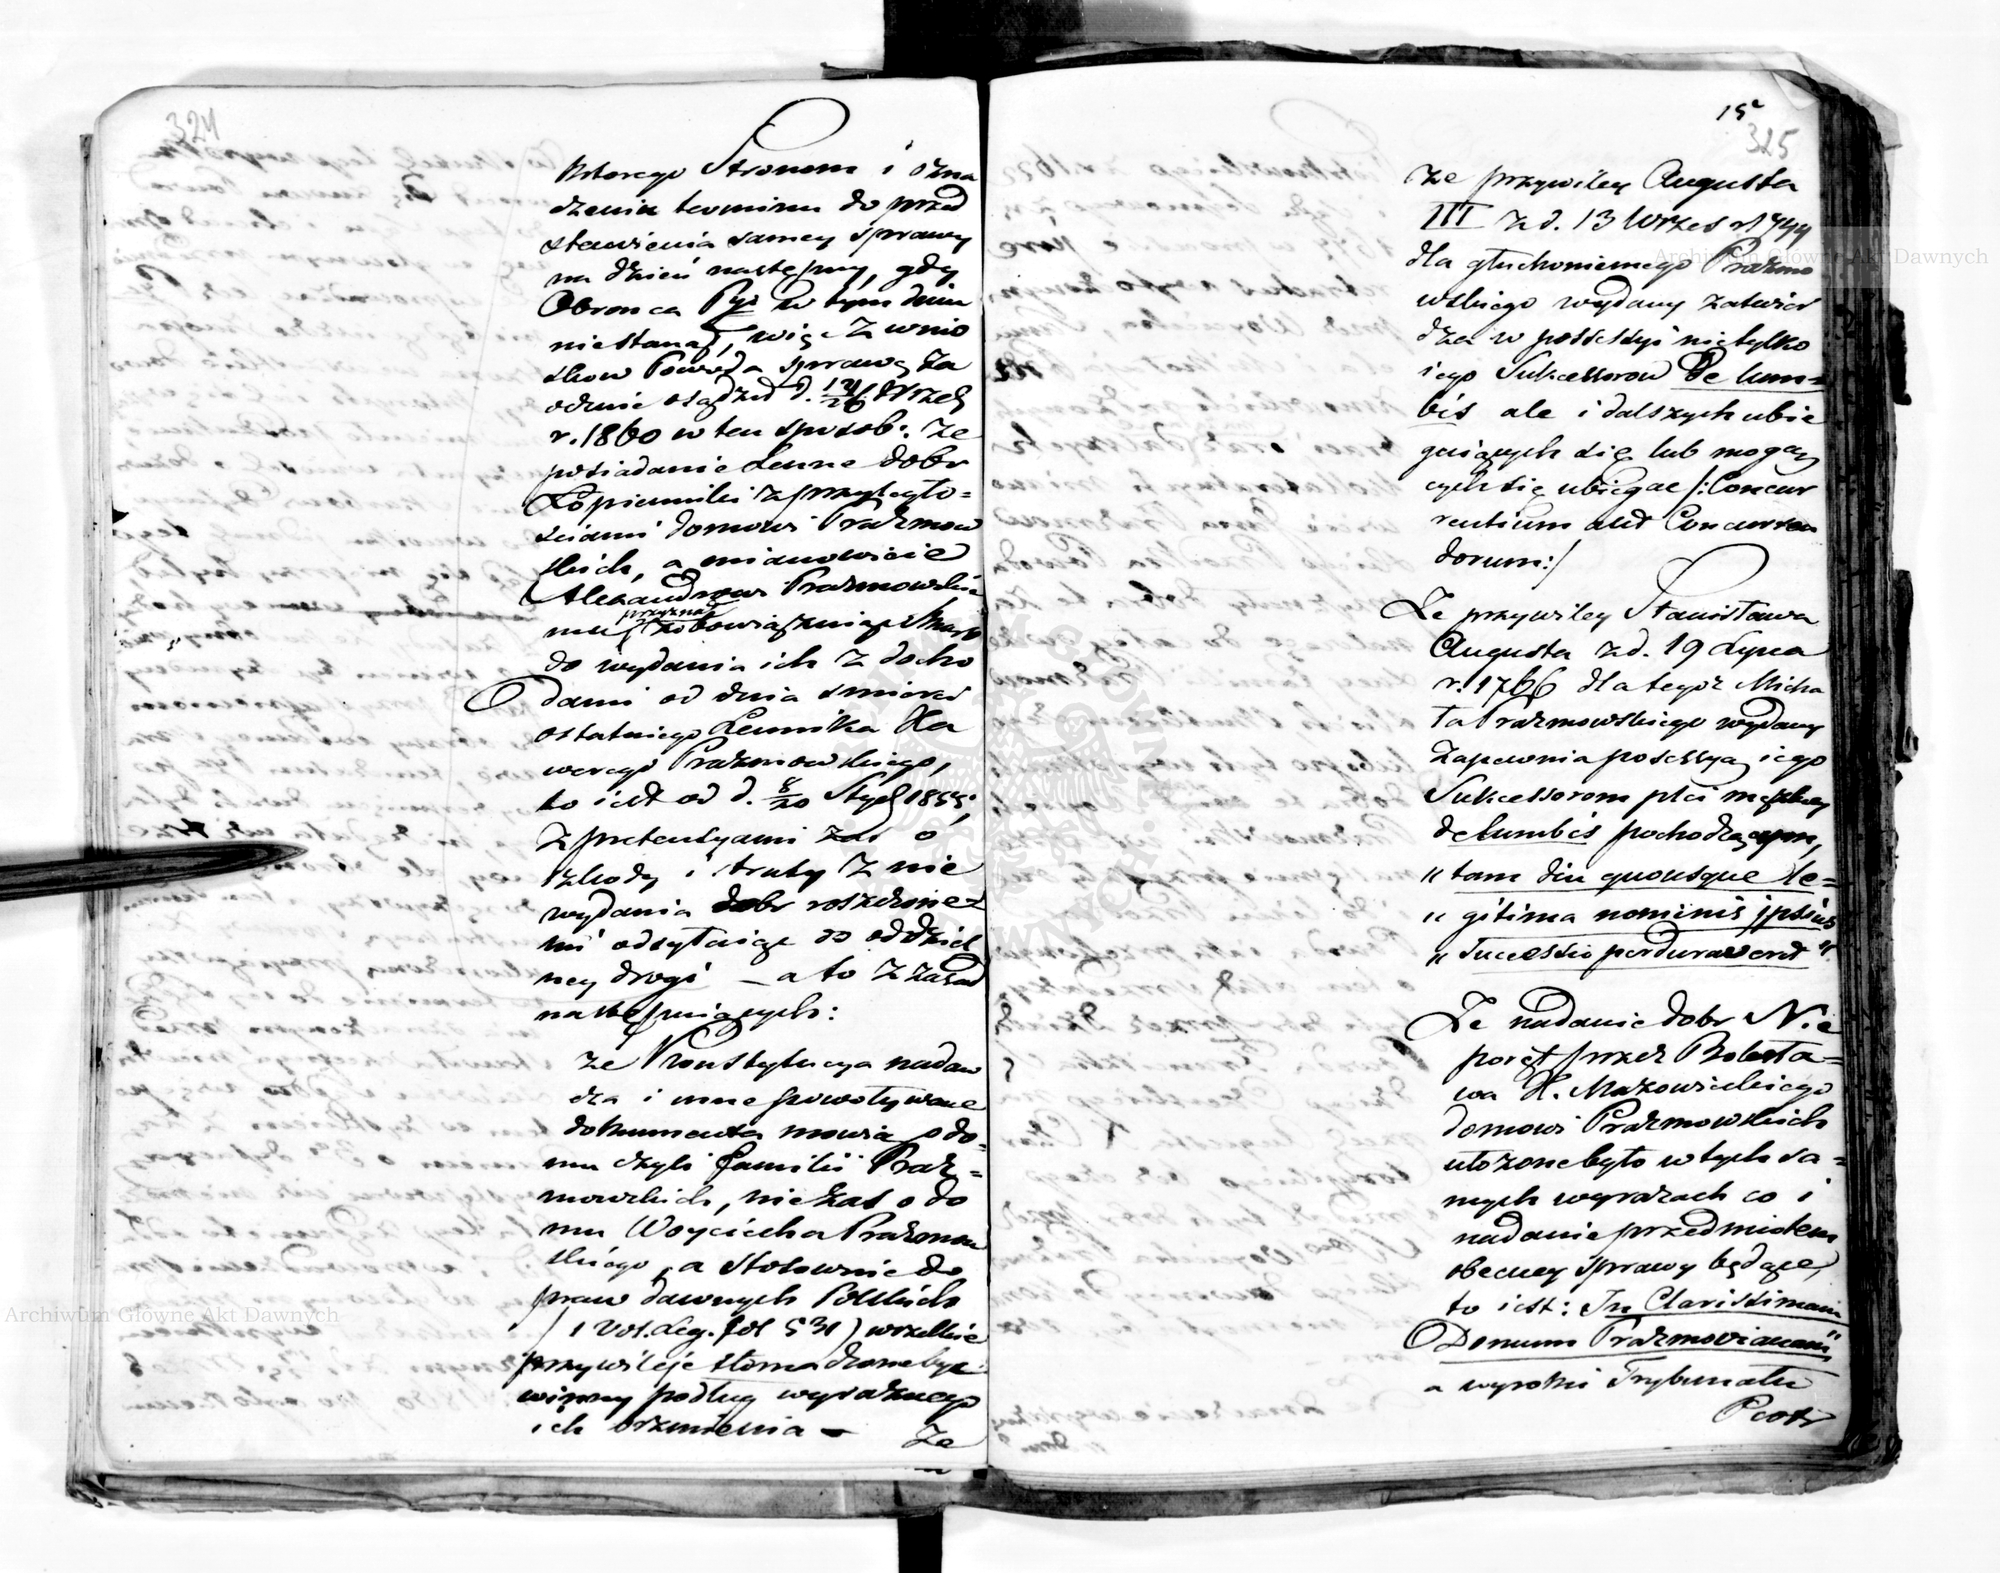 324
którego Stronom i ozna
czenia terminu do przed
stawienia samey sprawy
na dzień następny, gdy
Obronca Pyż w tym dniu
niestanął, więc z wnio
skow Powoda sprawę za
ocznie osądził d. 14/26 Wrześ
r. 1860 w ten sposob: że
posiadanie Lenne dobr
Łopiennik z przyległo=
ściami domowi Prażmow
skich, a mianowicie
Alexandrowi Prażmowskie
mu przyznał zobowiązując Skarb
do wydania ich z docho
dami od dnia śmierci
ostatniego Lennika Xa
werego Prażmowskiego,
to iest od d. 8/20 Stycz 1855;
z pretensyami zaś o
szkody i straty z nie
wydania dobr roszczone
mi odsyłaiąc do oddziel
ney drogi — a to z zasad
następuiących:
że Konstytucya nadaw
cza i inne powoływane
dokumenta mowią o do=
mu czyli familii Praż=
mowskich, nie zaś o do
mu Woyciecha Prażmow
skiego, a stosownie do
praw dawnych Polskich
/ 1 Vol. Leg. fol 531) wszelkie
przywileje tłomaczone być
winny podług wyraźnego
ich brzmienia —
że
15
325
że przywiley Augusta
III z d. 13 Wrześ r. 1744
dla głuchoniemego Prażmo
wskiego wydany zatwier
dza w possessyi nietylko
iego Sukcessorow De lum=
bis ale i dalszych ubie
gaiących się lub mogąc
cych się ubiegac /: Concur
rentium aut Concurren
dorum:/
Że przywiley Stanisława
Augusta z d. 19 Lipca
r. 1766 dla tegoż Micha
ła Prażmowskiego wydany
zapewnia possessyą iego
Sukcessorom płci męskiey
de lumbis pochodzącym,
„ tam diu quousque le=
„ gitima nominis ipsius
„ Successio perduraverit "
Że nadanie dobr Nie
poręt przez Bolesła=
wa X. Mazowieckiego
domowi Prażmowskich
ułożone było w tych sa=
mych wyrazach co i
nadanie przedmiotem
obecney sprawy będące,
to iest: In Clarissimam
Domum Prażmovianam"
a wyroki Trybunału
Piotr
Archiwum Główne Akt Dawnych
Archiwum Główne Akt Dawnych